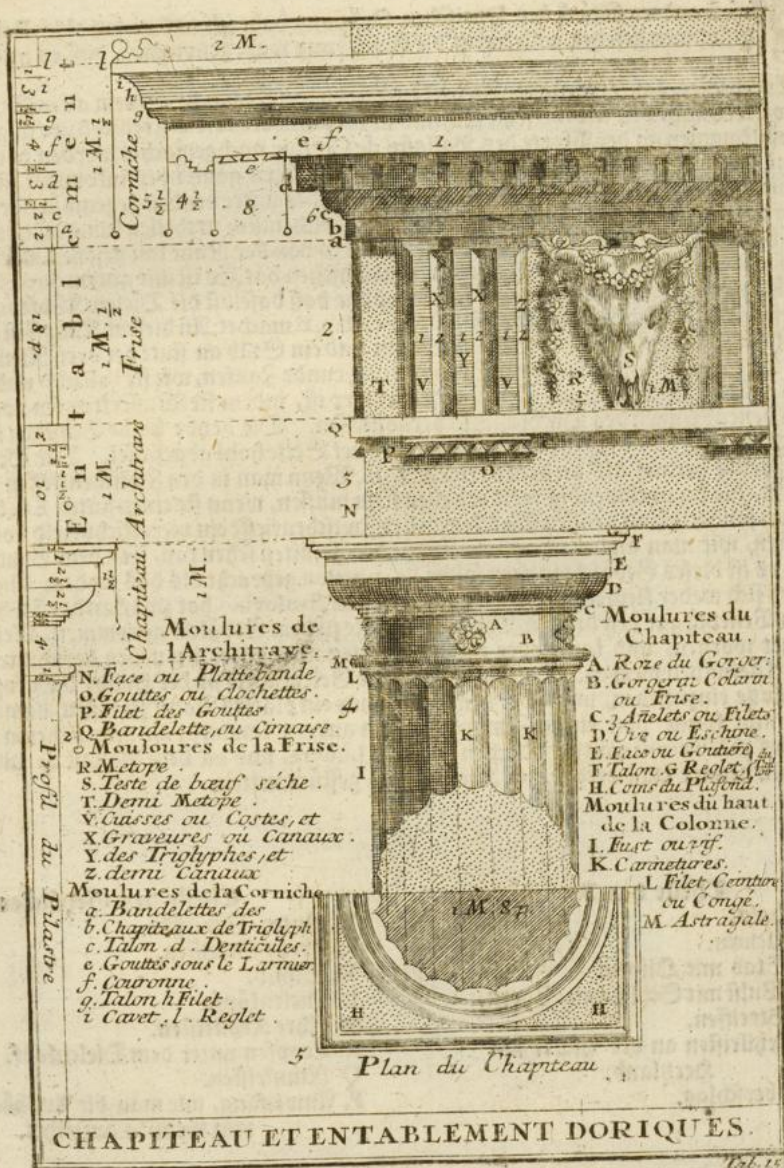 2 M.
l
l
i
h
g
e f
1.
e
d
6 c
b
a
Corniche
1 M. 1/2
5 1/2
4 1/2
8
Entablement
18 p.
1 M. 1/2
Frise
2
X X
Z
1 2 1 2 1 2
T V Y V R S 1 M
2
10
1 M.
Architrave
Q
P
O
3
N
Chapiteau
1 M.
F
E
D
C
A
B
M
L
4
K K
I
Moulures de
l Architrave.
N. Face ou Plattebande
O. Gouttes ou clochettes.
P. Filet des Gouttes
Q. Bandelette, ou Cimaise.
Mouloures de la Frise.
R Metope.
S. Teste de bœuf séche.
T. Demi Metope.
V. Cuisses ou Costes, et
X. Graveures ou Canaux.
Y. des Triglyphes, et
Z. demi Canaux
Moulures de la Corniche
a. Bandelettes des
b. Chapiteaux de Triglyph
c. Talon. d. Denticules.
e. Gouttes sous le Larmier
f. Couronne.
g. Talon h Filet.
i Cavet. l. Reglet.
Profil du Pilastre
Moulures du
Chapiteau.
A. Roze du Gorger:
B. Gorgerin Colarin
ou Frise.
C. 3 Añelets ou Filets
D Ove ou Eschine.
E. Face ou Goutiere
F. Talon. G Reglet.
H. Coins du Plafond.
Moulures du haut
de la Colonne.
I. Fust ou vif.
K. Cannetures.
L Filet, Ceinture
ou Congé.
M. Astragale.
1 M. 8 p.
H H
5
Plan du Chapiteau
CHAPITEAU ET ENTABLEMENT DORIQUES.